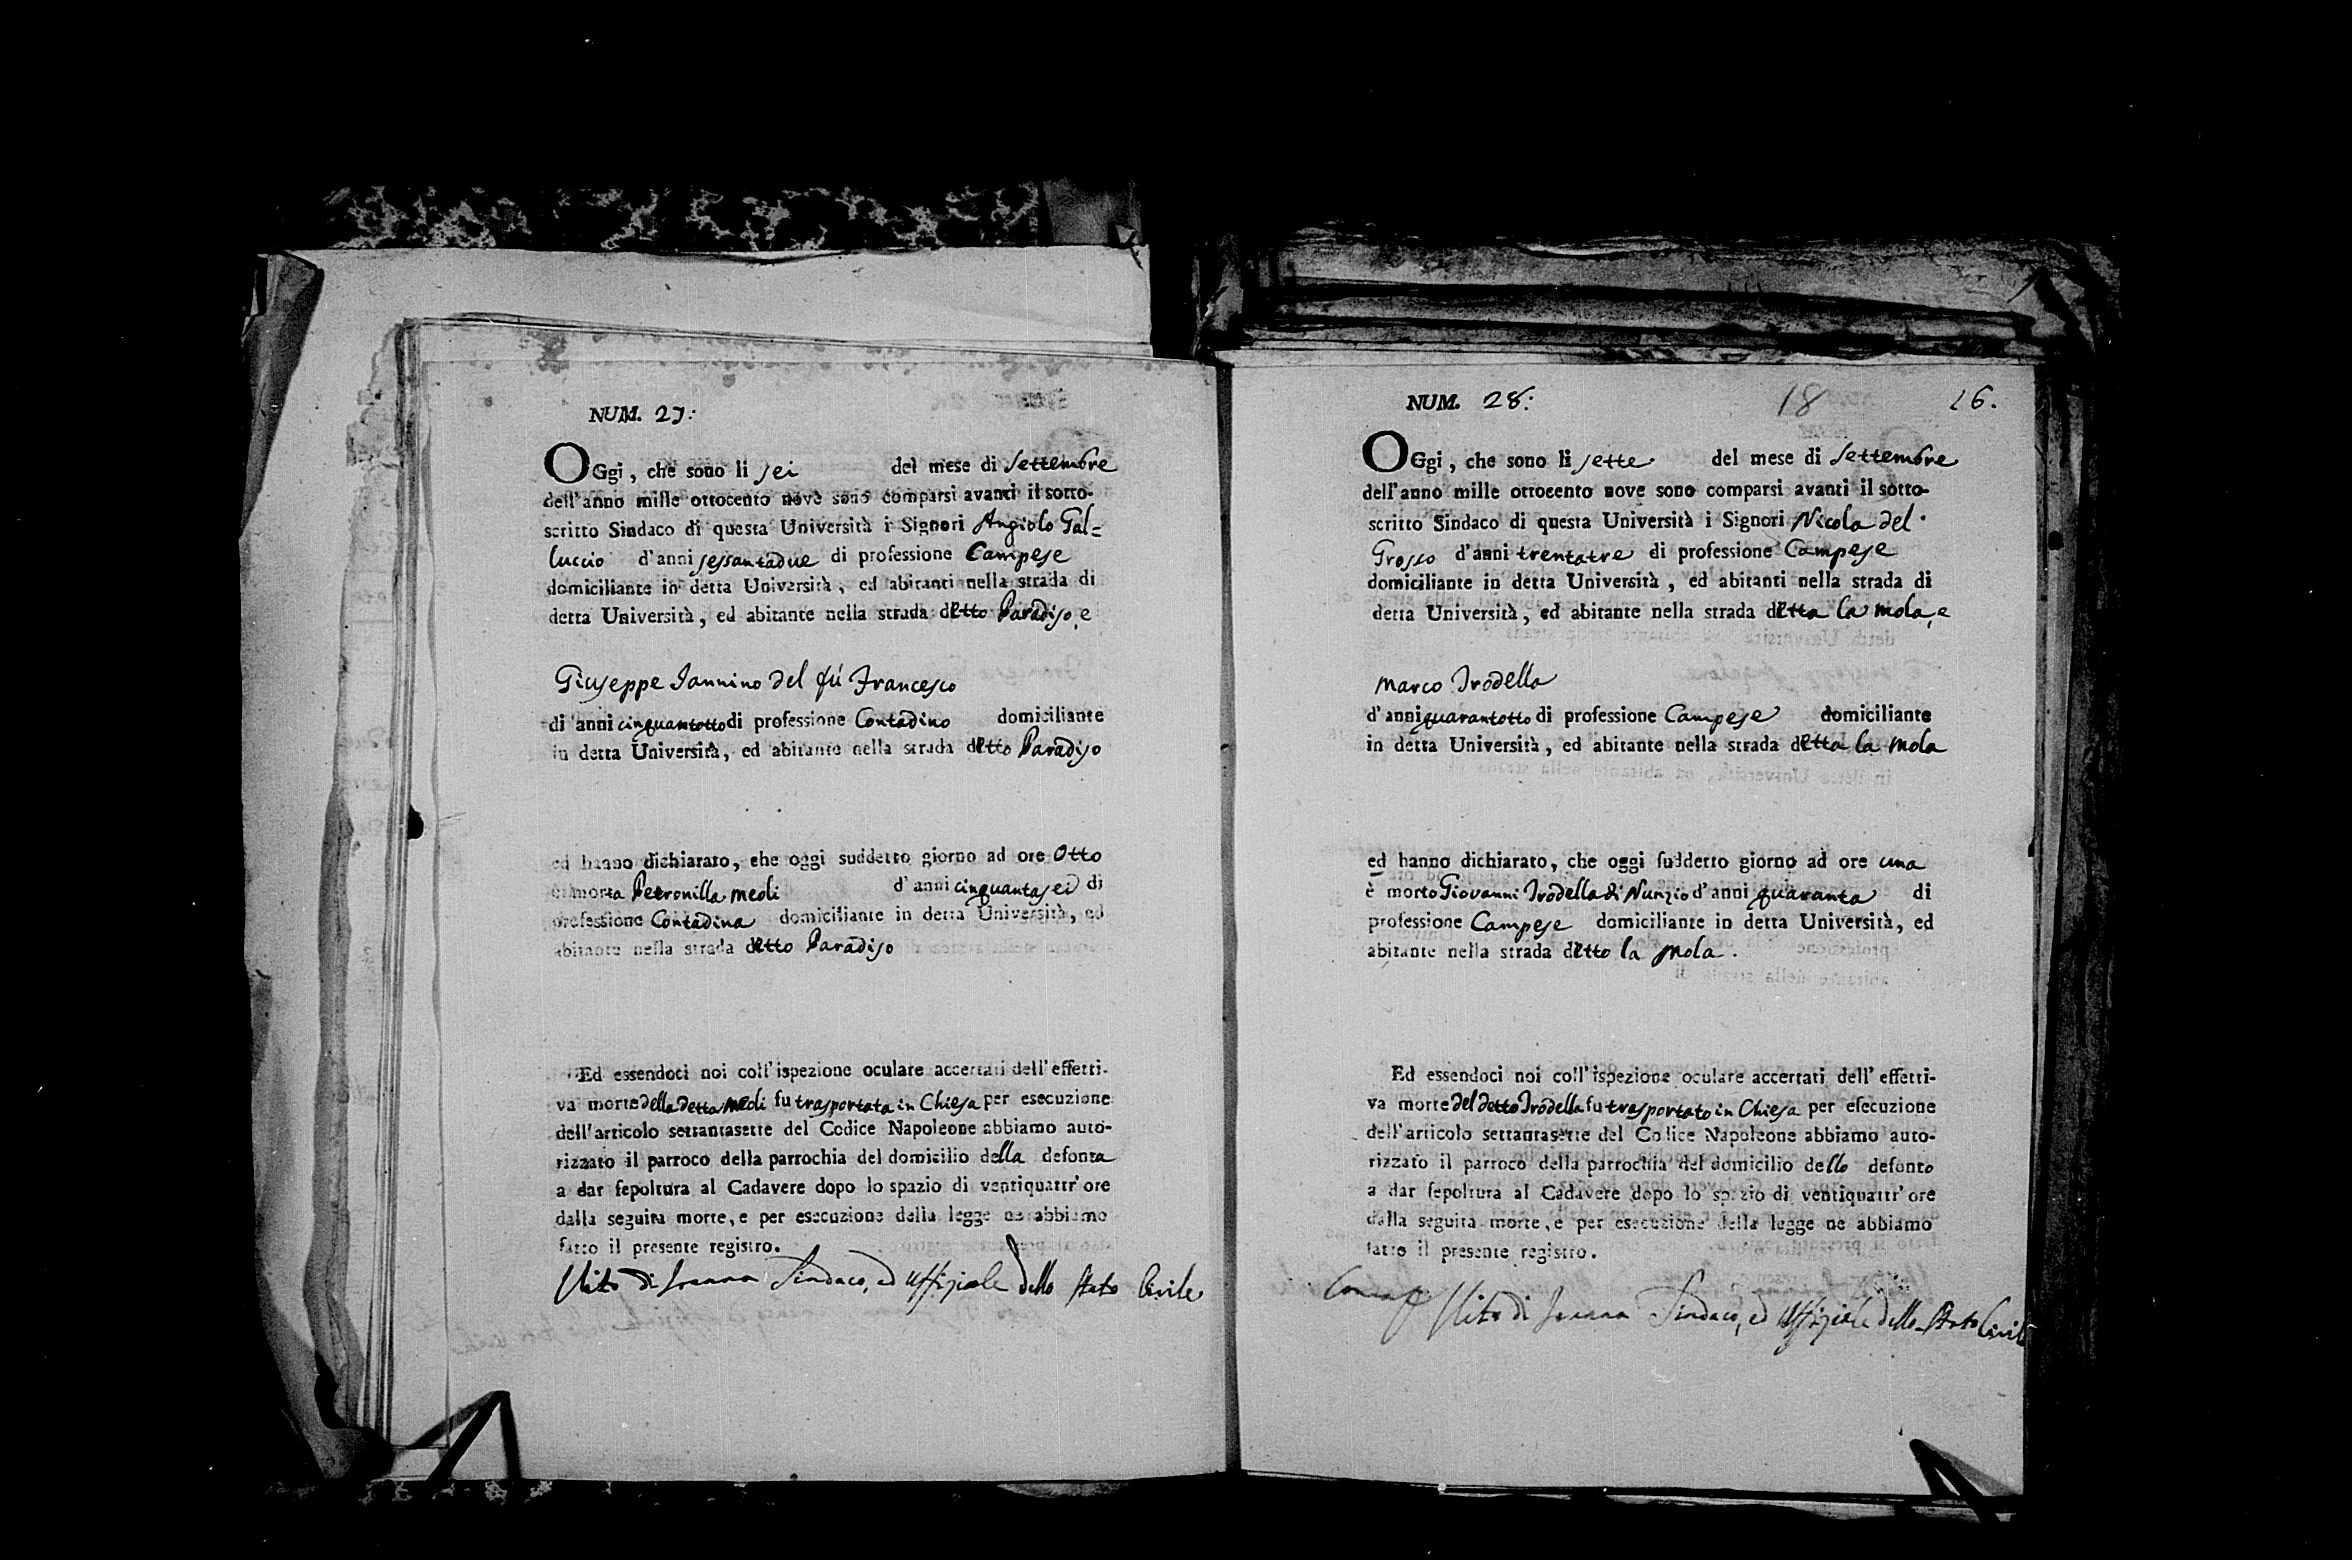 NUM. 27:
OGgi, che sono li sei del mese di Settembre
dell'anno mille ottocento nove sono comparsi avanti il sotto-
scritto Sindaco di questa Università i Signori Angiolo Gal=
luccio d'anni sessantadue di professione Campese
domiciliante in detta Università, ed abitanti nella strada di
detta Università, ed abitante nella strada detto Paradiso, e
Giuseppe Iannino del fù Francesco
di anni cinquantotto di professione Contadino domiciliante
in detta Università, ed abitante nella strada detto Paradiso
ed hanno dichiarato, che oggi suddetto giorno ad ore Otto
è morta Petronilla Meoli d'anni cinquantasei di
professione Contadina domiciliante in detta Università, ed
abitante nella strada detto Paradiso
Ed essendoci noi coll'ispezione oculare accertati dell'effetti-
va morte della detta Meoli fu trasportata in Chiesa per esecuzione
dell'articolo settantasette del Codice Napoleone abbiamo auto-
rizzato il parroco della parrochia del domicilio della defonta
a dar sepoltura al Cadavere dopo lo spazio di ventiquattr'ore
dalla seguita morte, e per esecuzione della legge ne abbiamo
fatto il presente registro.
Vito di Sindaco, ed Uffiziale dello Stato Civile
NUM. 28: 18 16.
OGgi, che sono li sette del mese di Settembre
dell'anno mille ottocento nove sono comparsi avanti il sotto-
scritto Sindaco di questa Università i Signori Nicola del
Grosso d'anni trentatre di professione Campese
domiciliante in detta Università, ed abitanti nella strada di
detta Università, ed abitante nella strada detta la Mola, e
Marco Irodella
d'anni quarantotto di professione Campese domiciliante
in detta Università, ed abitante nella strada detta la Mola
ed hanno dichiarato, che oggi suddetto giorno ad ore una
è morto Giovanni Irodella di Nunzio d'anni quaranta di
professione Campese domiciliante in detta Università, ed
abitante nella strada detto la Mola.
Ed essendoci noi coll'ispezione oculare accertati dell'effetti-
va morte del detto Irodella fu trasportato in Chiesa per esecuzione
dell'articolo settantasette del Codice Napoleone abbiamo auto-
rizzato il parroco della parrochia del domicilio dello defonto
a dar sepoltura al Cadavere dopo lo spazio di ventiquattr'ore
dalla seguita morte, e per esecuzione della legge ne abbiamo
fatto il presente registro.
Vito di Sindaco, ed Uffiziale dello Stato Civile